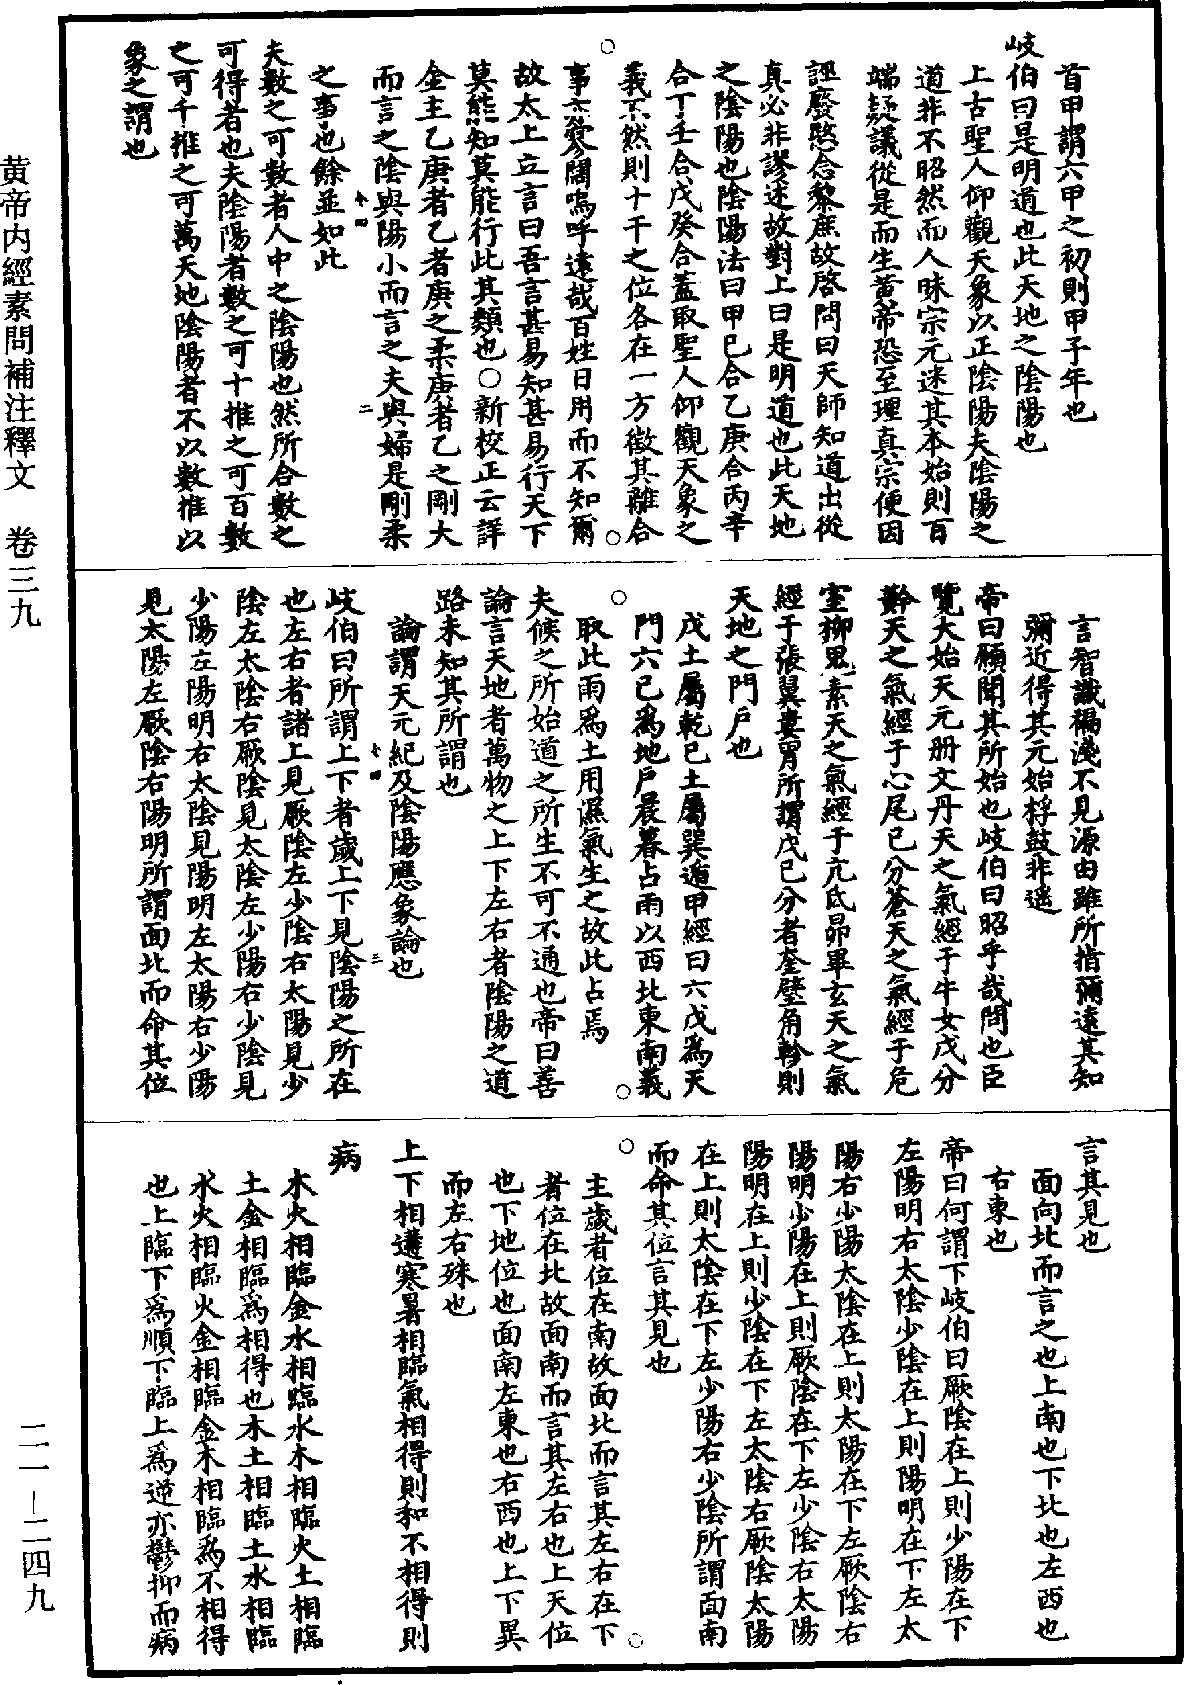 首甲謂六甲之初則甲子年也
岐伯曰是明道也此天地之陰陽也
上古聖人仰觀天象以正陰陽夫陰陽之
道非不昭然而人昧宗元迷其本始則百
端疑議從是而生黃帝恐至理真宗便因
誣廢愍念黎庶故啓問曰天師知道出從
真必非謬述故對上曰是明道也此天地
之陰陽也陰陽法曰甲已合乙庚合丙辛
合丁壬合戊癸合蓋取聖人仰觀天象之
義不然則十干之位各在一方徵其離合
事亦寥闊嗚呼遠哉百姓日用而不知爾
故太上立言曰吾言甚易知甚易行天下
莫能知莫能行此其類也○新校正云詳
金主乙庚者乙者庚之柔庚者乙之剛大
而言之陰與陽小而言之夫與婦是剛柔
之事也餘並如此
夫數之可數者人中之陰陽也然所合數之
可得者也夫陰陽者數之可十推之可百數
之可千推之可萬天地陰陽者不以數推以
象之謂也
言智識褊淺不見源由雖所指彌遠其知
彌近得其元始桴鼓非遥
帝曰願聞其所始也岐伯曰昭乎哉問也臣
覽大始天元册文丹天之氣經于牛女戊分
黅天之氣經于心尾已分蒼天之氣經于危
室柳鬼素天之氣經于亢氐昴畢玄天之氣
經于張翼婁胃所謂戊已分者奎壁角軫則
天地之門戶也
戊土屬乾已土屬巽遁甲經曰六戊為天
門六已為地戶晨暮占雨以西北東南義
取此雨為土用濕氣生之故此占焉
夫候之所始道之所生不可不通也帝曰善
論言天地者萬物之上下左右者陰陽之道
路未知其所謂也
論謂天元紀及陰陽應象論也
岐伯曰所謂上下者歲上下見陰陽之所在
也左右者諸上見厥陰左少陰右太陽見少
陰左太陰右厥陰見太陰左少陽右少陰見
少陽左陽明右太陰見陽明左太陽右少陽
見太陽左厥陰右陽明所謂面北而命其位
言其見也
面向北而言之也上南也下北也左西也
右東也
帝曰何謂下岐伯曰厥陰在上則少陽在下
左陽明右太陰少陰在上則陽明在下左太
陽右少陽太陰在上則太陽在下左厥陰右
陽明少陽在上則厥陰在下左少陰右太陽
陽明在上則少陰在下左太陰右厥陰太陽
在上則太陰在下左少陽右少陰所謂面南
而命其位言其見也
主歲者位在南故面北而言其左右在下
者位在北故面南而言其左右也上天位
也下地位也面南左東也右西也上下異
而左右殊也
上下相遘寒暑相臨氣相得則和不相得則
病
木火相臨金水相臨水木相臨火土相臨
土金相臨為相得也木土相臨土水相臨
水火相臨火金相臨金木相臨為不相得
也上臨下為順下臨上為逆亦鬱抑而病
黄帝内經素問補注釋文　卷三九
二一－二四九